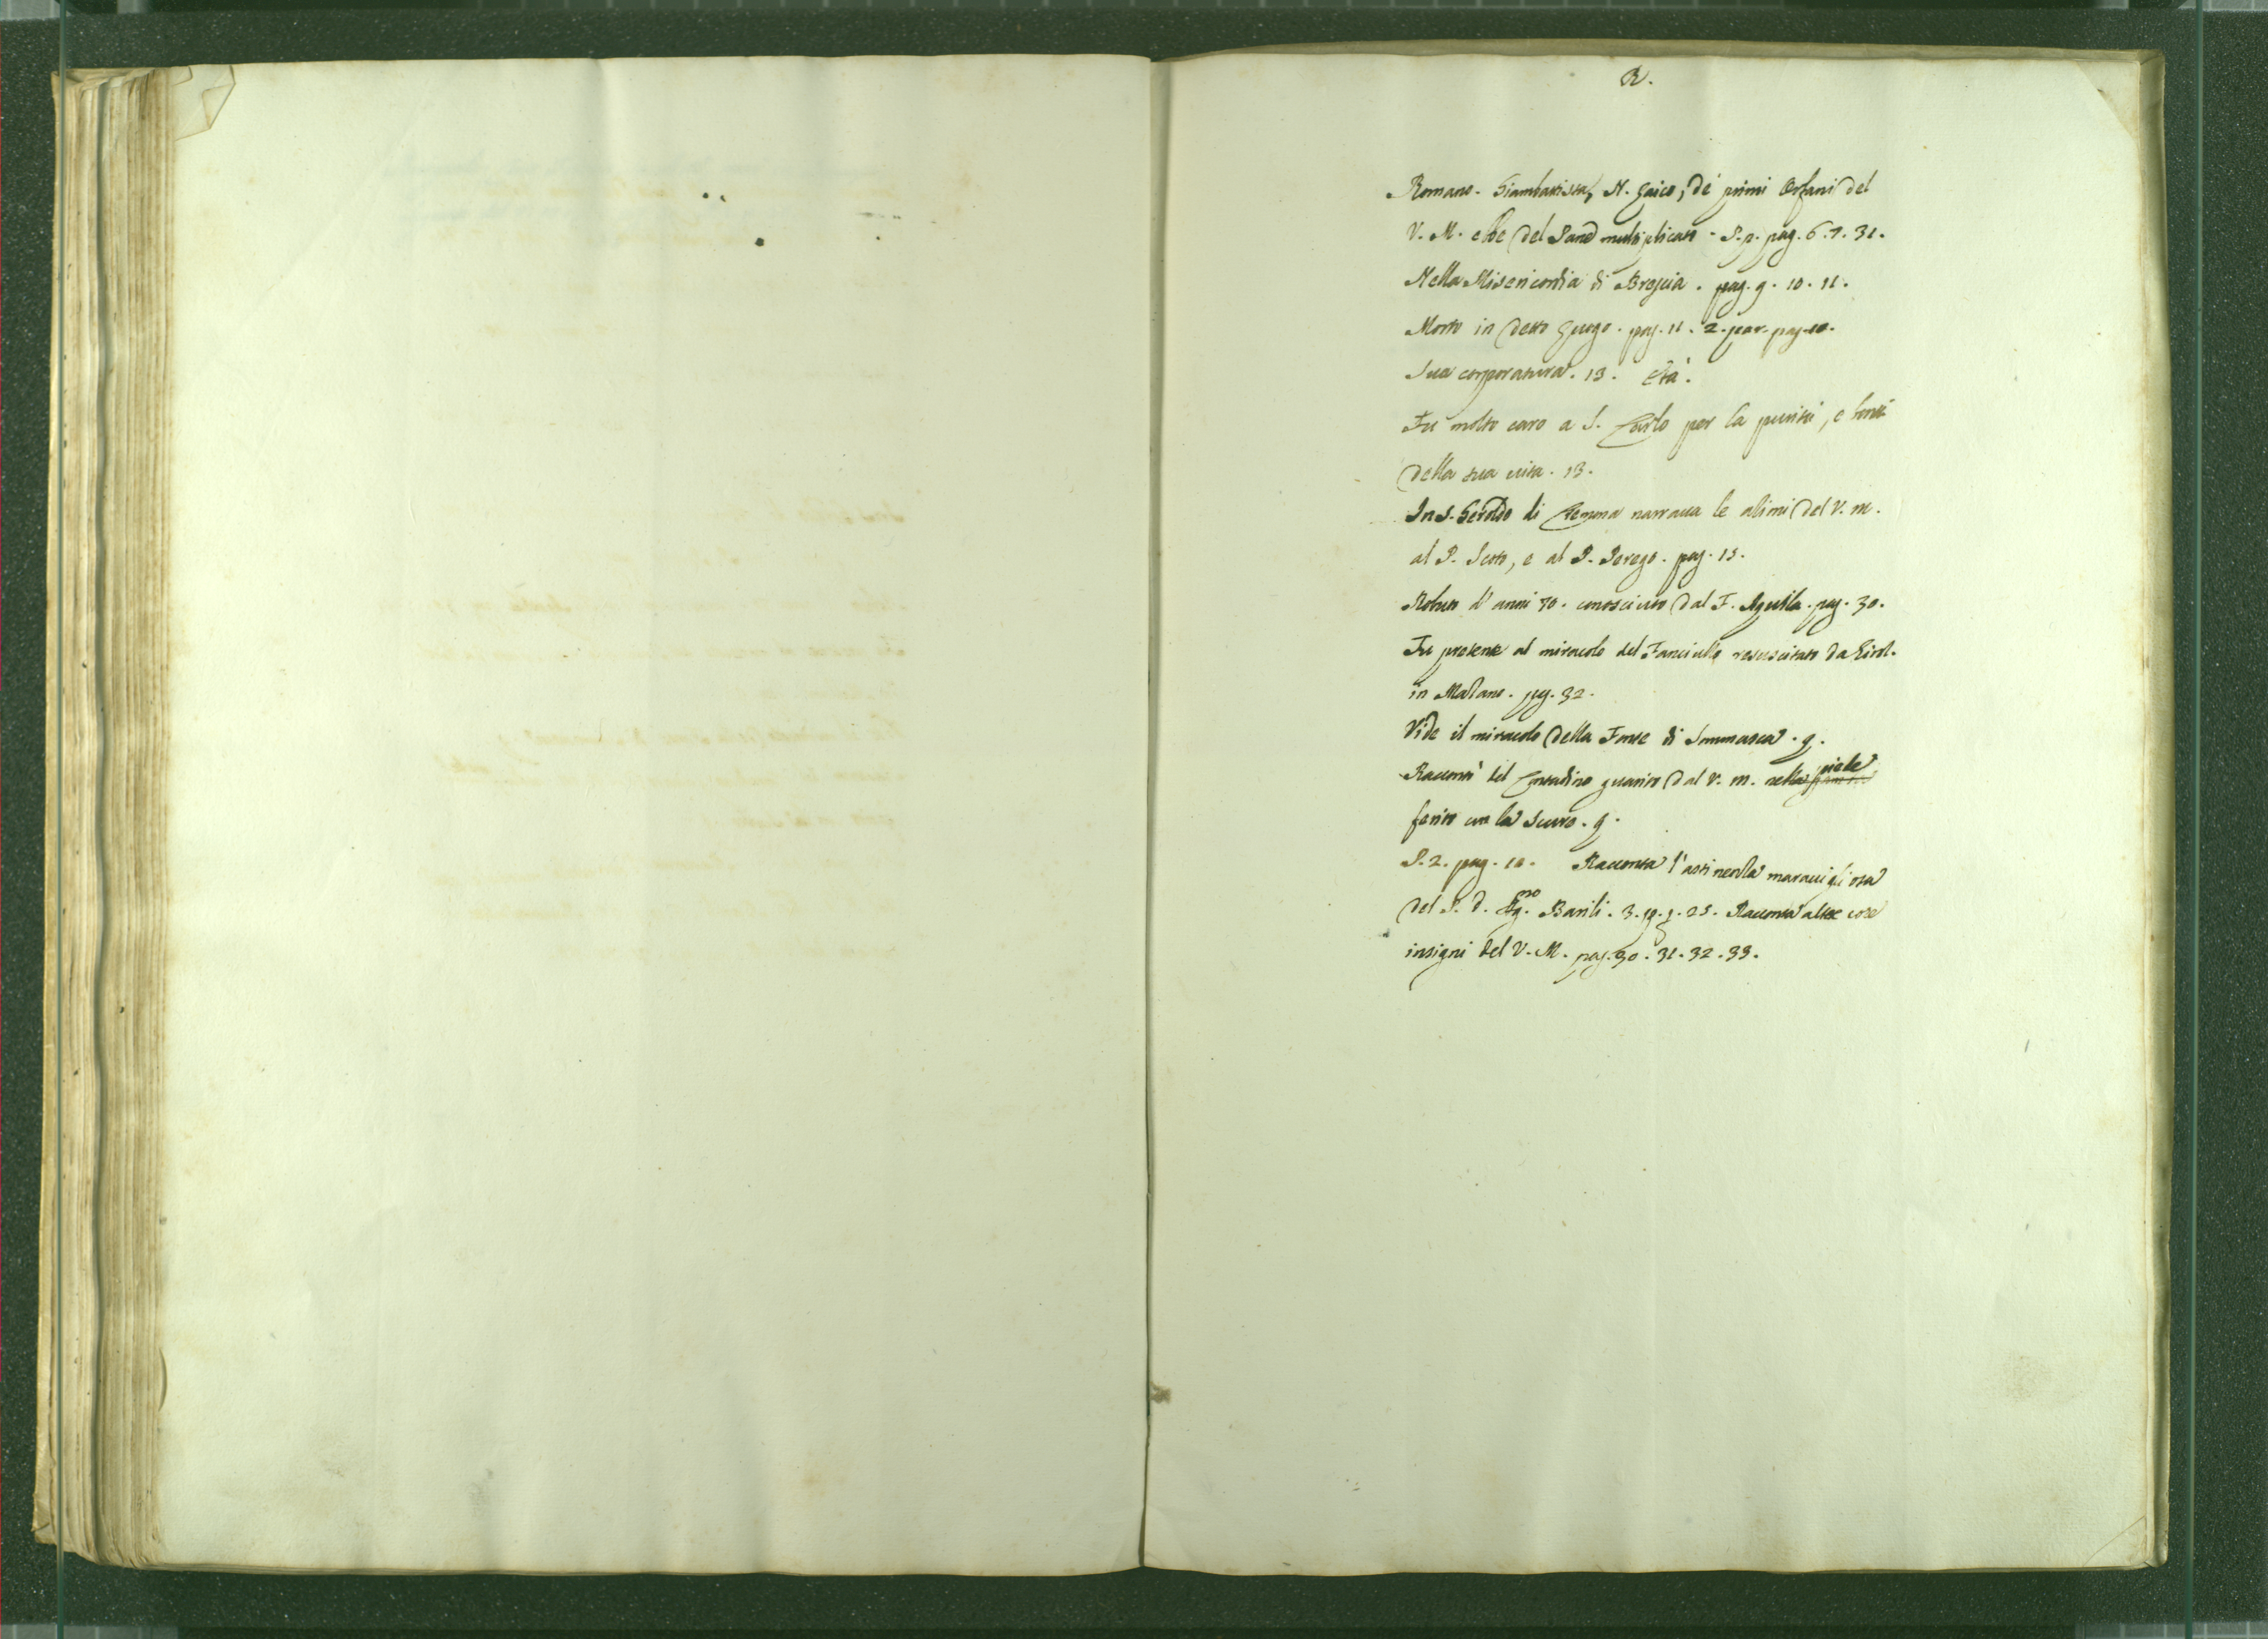 R.
Romano. Giambattista, N. Laico, de' primi Orfani del
V. M. ebbe del Pane multiplicato - P. p. pag. 6. 7. 31.
Nella Misericordia di Brescia. pag. 9. 10. 11.
Morto in detto Luogo. pag. 11. 2. par. pag. 10.
Sua corporatura. 13. Età.
Fu molto caro a S. Carlo per la purità, e bontà
della sua vita. 13.
In S. Geroldo di Cremona narrava le azioni del V. M.
al P. Scoto, e al P. Perego. pag. 15.
Robusto d'anni 70. conosciuto dal F. Aquila. pag. 30.
Fu presente al miracolo del Fanciullo resuscitato da Girol.
in Milano. pag. 32.
Vide il miracolo della Fonte di Sommasca. 9.
Raccontò del Contadino guarito dal V. M. nella piede
ferito con la scure. 9.
P. 2. pag. 10. Racconta l'astinenza maravigliosa
del P. D. Ag.no Barili. 3. 19. 25. Racconta altre cose
insigni del V. M. pag. 30. 31. 32. 33.